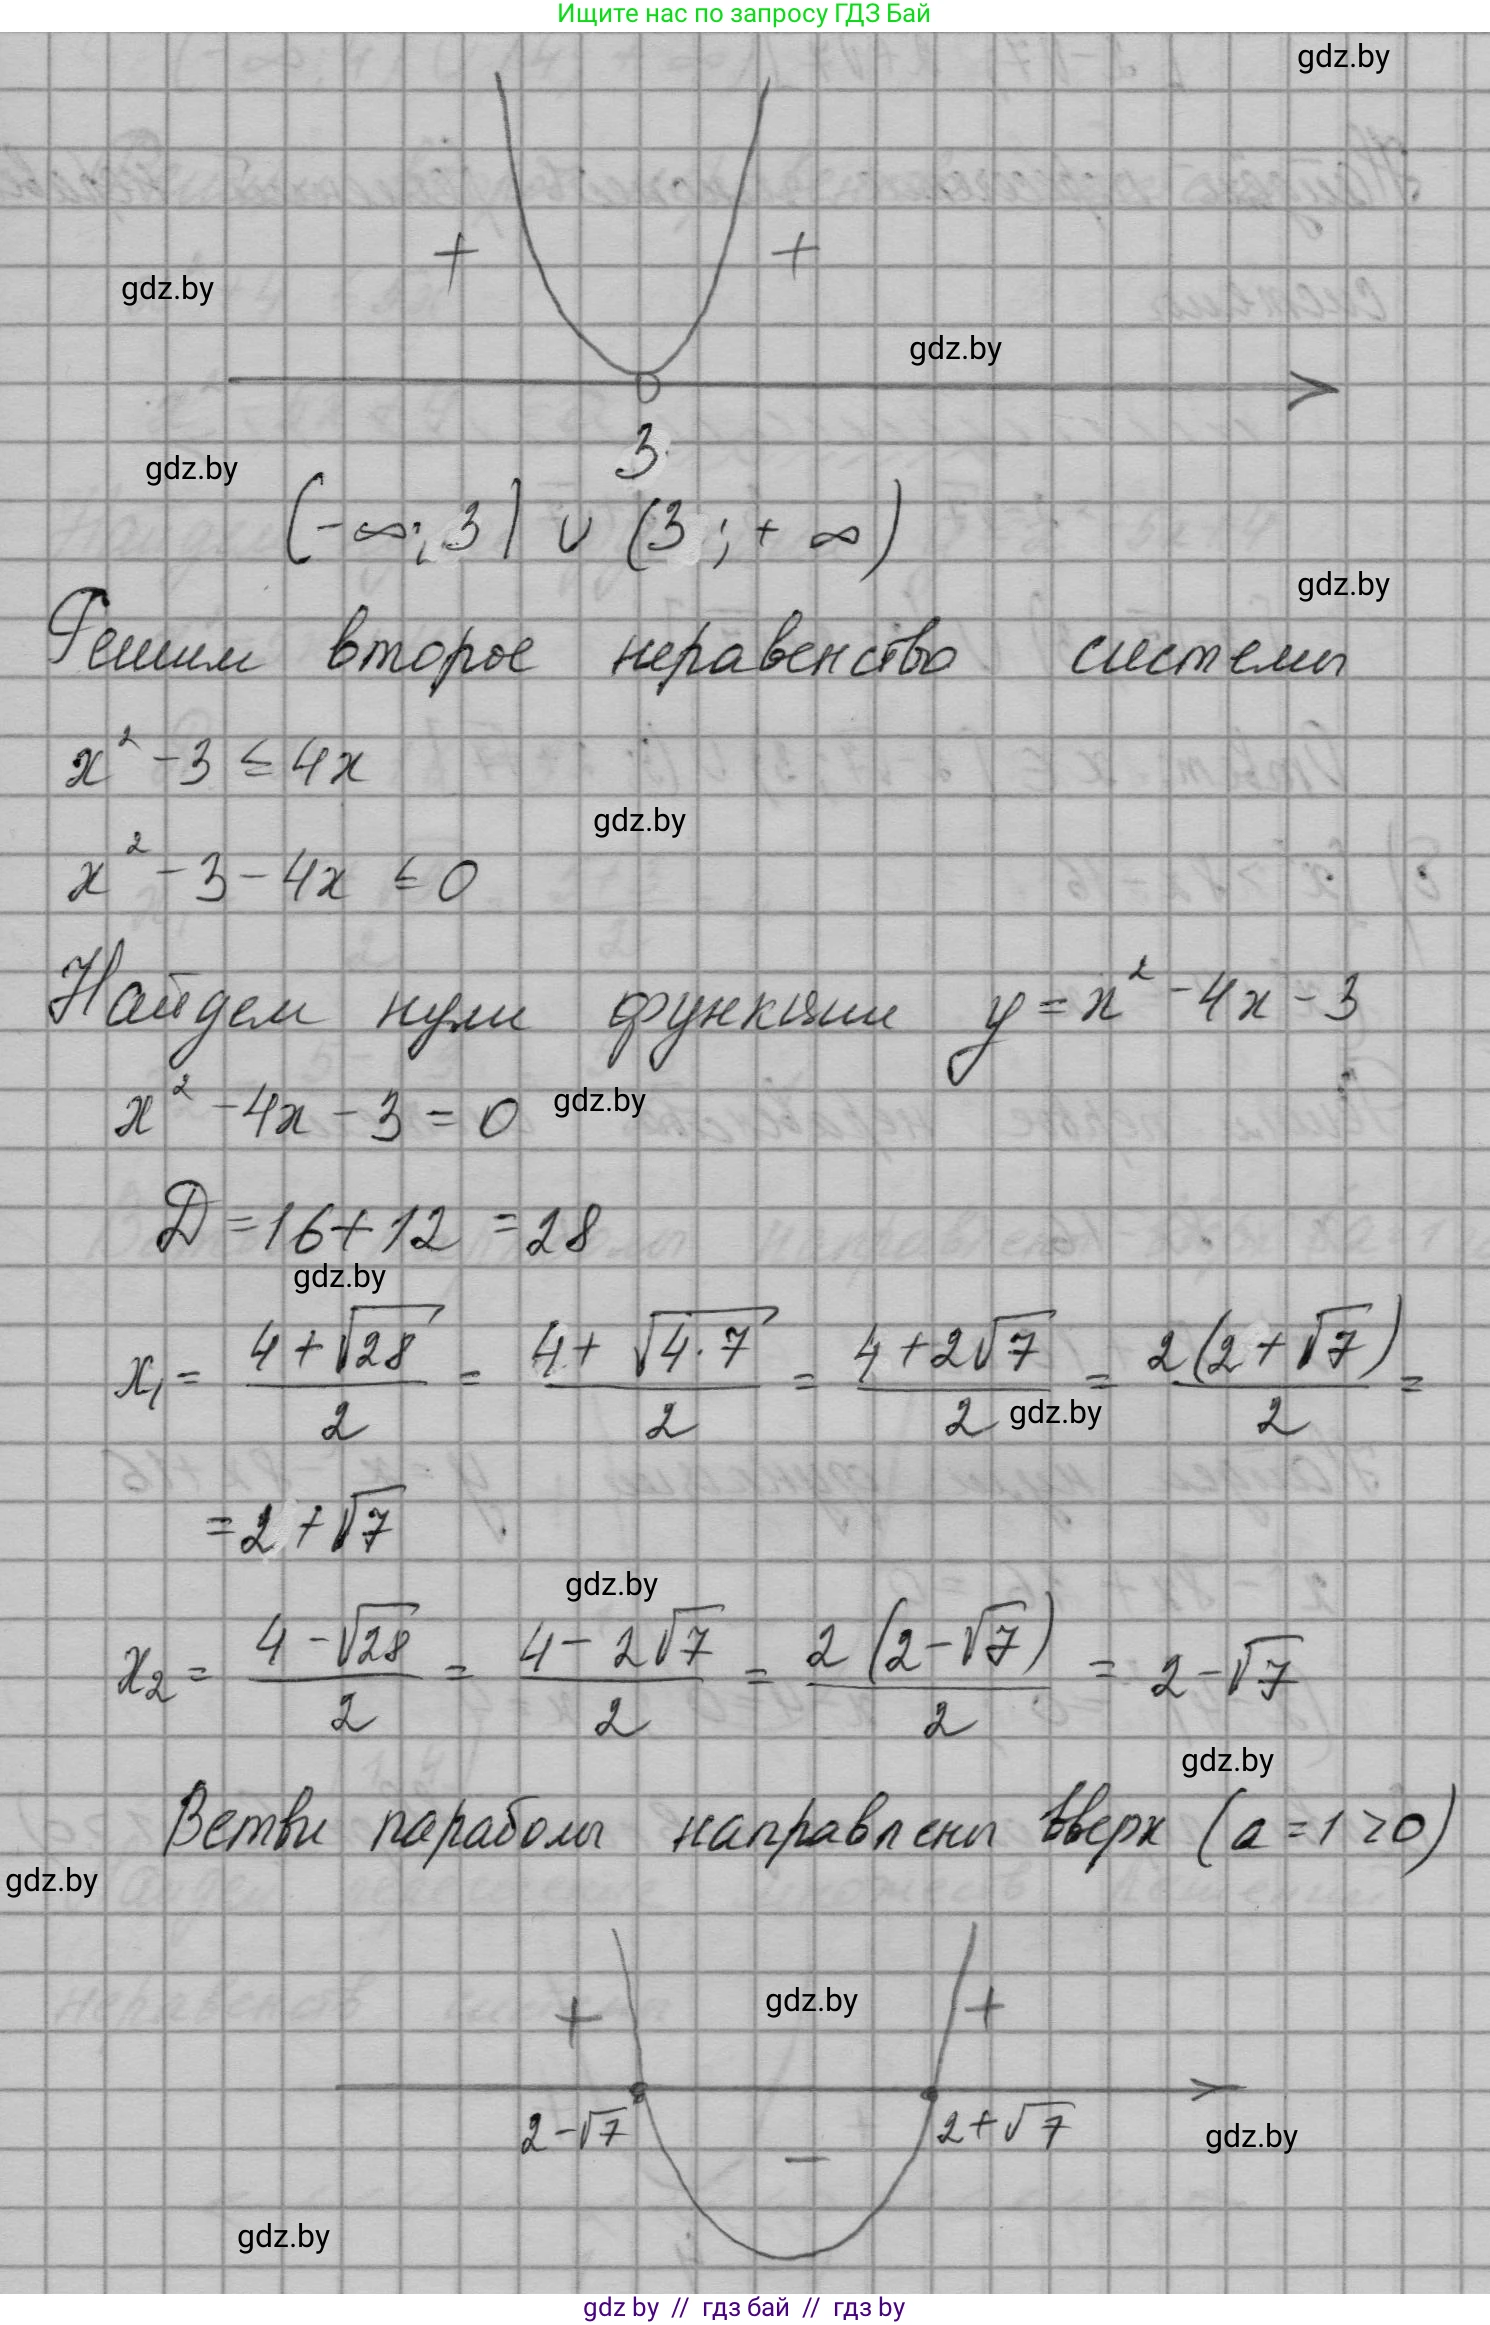 Ищите нас по запросу ГДЗ Бай
gdz.by
+ +
gdz.by
gdz.by
3
gdz.by
(-∞; 3) ∪ (3; +∞)
gdz.by
Решим второе неравенство системы
x² - 3 ≤ 4x
gdz.by
x² - 3 - 4x ≤ 0
Найдем нули функции y = x² - 4x - 3
x² - 4x - 3 = 0
gdz.by
D = 16 + 12 = 28
gdz.by
x₁ = (4 + √28)/2 = (4 + √(4·7))/2 = (4 + 2√7)/2 = (2(2 + √7))/2 =
gdz.by
= 2 + √7
gdz.by
x₂ = (4 - √28)/2 = (4 - 2√7)/2 = (2(2 - √7))/2 = 2 - √7
gdz.by
Ветви параболы направлены вверх (a = 1 > 0)
gdz.by
+ gdz.by +
2 - √7 2 + √7
gdz.by
-
gdz.by
gdz by // гдз бай // гдз by